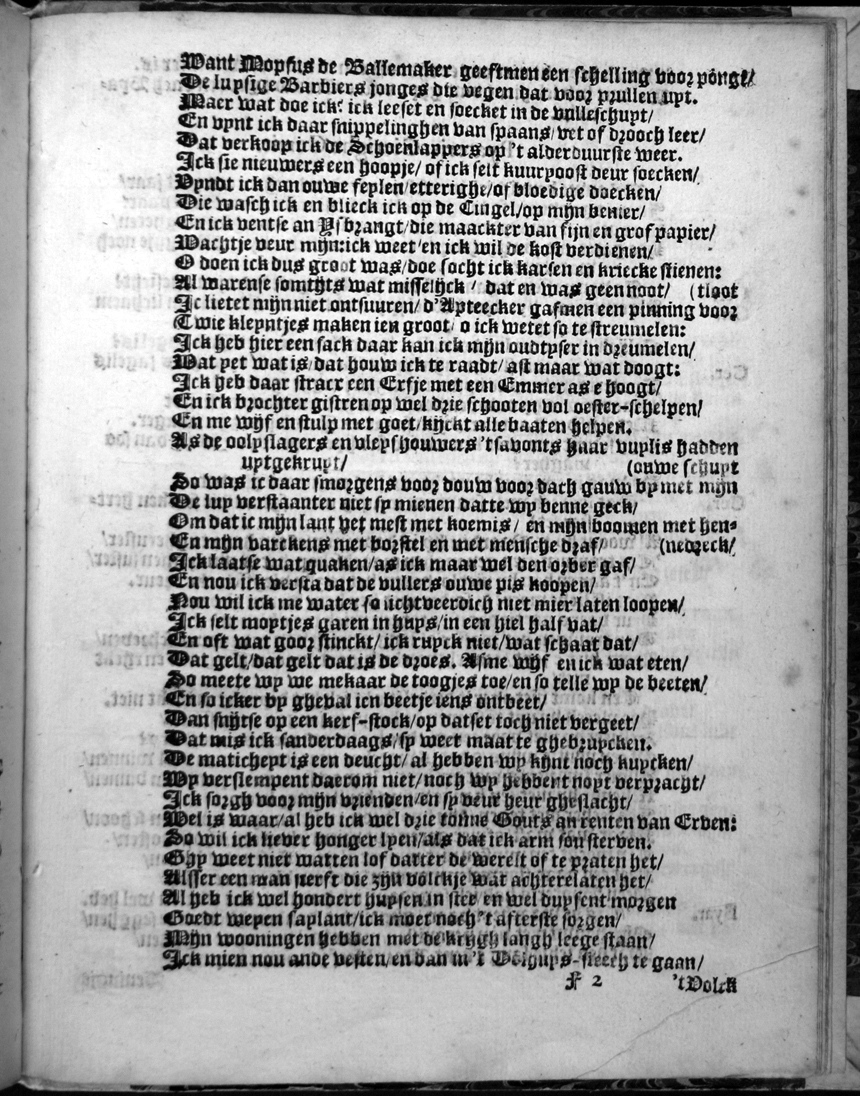 Want Mopsus de Ballemaker geeftmen een schelling voor pongt/
De lupsige Barbiers jonges die vegen dat voor prullen uyt.
Maer wat doe ick? ick leeset en soecket in de vulleschuyt/
En vynt ick daar snippelinghen van spaans/ vet of drooch leer/
Dat verkoop ick de Schoenlappers op 't alderduurste weer.
Ick sie nieuwers een hoopje/ of ick selt kuurpoost deur soecken/
Vyndt ick dan ouwe feylen/ etterighe/ of bloedige doecken/
Die wasch ick en blieck ick op de Cingel/ op mijn benier/
En ick ventse an Ysbrangt/ die maackter van fijn en grof papier/
Wachtje veur mijn: ick weet/ en ick wil de kost verdienen/
O doen ick dus groot was/ doe socht ick karsen en kriecke stienen:
Al warense somtijts wat misselijck/ dat en was geen noot/ (tloot
Ic lietet mijn niet ontsuuren/ d'Apteecker gafmen een pinning voor
Twie kleyntjes maken ien groot/ o ick wetet so te streumelen:
Ick heb hier een sack daar kan ick mijn oudtyser in dreumelen/
Wat yet wat is/ dat houw ick te raadt/ ast maar wat doogt:
Ick heb daar stracx een Erfje met een Emmer as e hoogt/
En ick brochter gistren op wel drie schooten vol oester-schelpen/
En me wijf en stulp met goet/ kijckt alle baaten helpen.
As de oolyslagers en vleyshouwers 'tsavonts haar vuylis hadden
uytgekruyt/ (ouwe schuyt
So was ic daar smorgens voor douw voor dach gauw by met mijn
De luy verstaanter niet sy mienen datte wy benne geck/
Om dat ic mijn lant yet mest met koemis/ en mijn boomen met hen-
En mijn varckens met borstel en met mensche draf/ (nedreck/
Ick laatse wat quaken/ as ick maar wel den orber gaf/
En nou ick versta dat de vullers ouwe pis koopen/
Nou wil ick me water so lichtveerdich niet mier laten loopen/
Ick selt moptjes garen in huys/ in een hiel half vat/
En oft wat goor stinckt/ ick ruyck niet/ wat schaat dat/
Dat gelt/ dat gelt dat is de droes. Asme wijf en ick wat eten/
So meete wy we mekaar de toogjes toe/ en so telle wy de beeten/
En so icker by gheval icn beetje iens ontbeet/
Dan snijtse op een kerf-stock/ op datset toch niet vergeet/
Dat mis ick sanderdaags/ sy weet maat te ghebruycken.
De matichept is een deucht/ al hebben wy kijnt noch kuycken/
Wy verslempent daerom niet/ noch wy hebbent noyt verpracht/
Ick sorgh voor mijn vrienden/ en sy veur heur gheslacht/
Wel is waar/ al heb ick wel drie tonne Gouts an renten van Erven:
So wil ick liever honger lyen/ als dat ick arm sou sterven.
Ghy weet niet watten lof datter de werelt of te praten het/
Alsser een man sterft die zijn volckje wat achterelaten het/
Al heb ick wel hondert huysen in stee en wel duysent morgen
Goedt weyen saylant/ ick moet noch 't afterste sorgen/
Mijn wooningen hebben met de krijgh langh leege staan/
Ick mien nou ande vesten/ en dan in 't -steech te gaan/
F 2 'tVolck